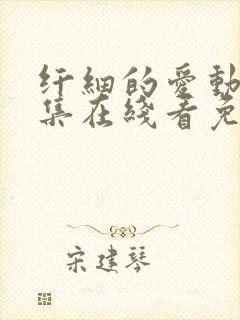 纤細的愛動
集在綫看免
宋建琴